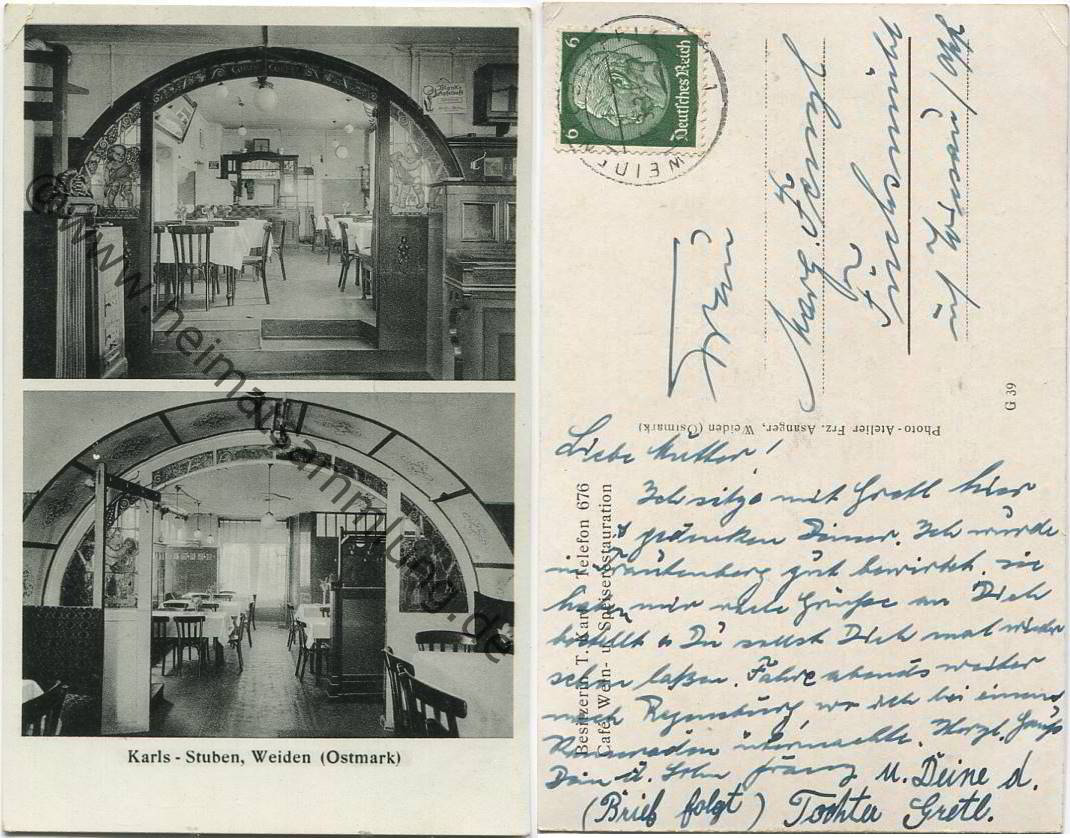 Karls - Stuben, Weiden (Ostmark)
www.heimatsammlung.de
6 6
Deutsches Reich
WEIDEN
Frau
Marg.
Photo-Atelier Frz. Asanger, Weiden (Ostmark)
G 39
Besitzerin T. Karl Telefon 676
Café, Wein- u. Speiserestauration
Liebe Mutter!
Ich sitze mit Gretl hier
u. gedenken Deiner. Ich wurde
in Trautenberg gut bewirtet, sie
haben mir viele Grüße an Dich
bestellt u. Du sollst Dich mal wieder
sehen laßen. Fahre abends weiter
nach Regensburg, wo ich bei einem
Kameraden übernachte. Herzl. Grüße
Dein d. Sohn Franz u. Deine d.
(Brief folgt) Tochter Gretl.